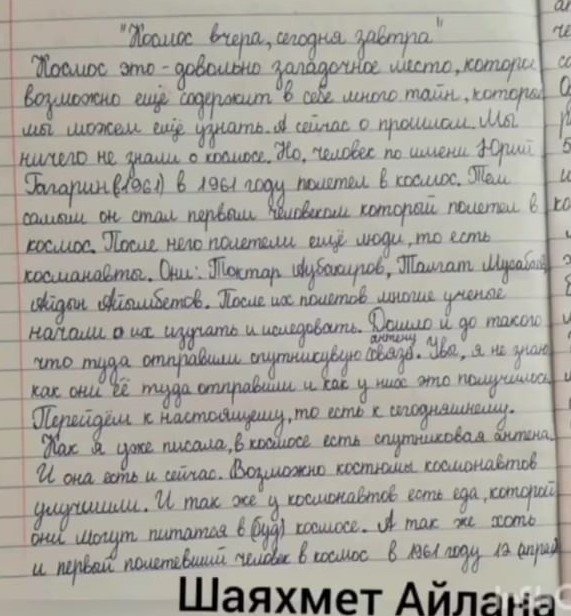 "Космос вчера, сегодня завтра"
Космос это - довольно загадочное место, которы
возможно ещё содержит в себе много тайн, которы
мы можем ещё узнать. А сейчас о прошлом. Мы
ничего не знали о космосе. Но, человек по имени Юрий
Гагарин (1961) в 1961 году полетел в космос. Тем
самым он стал первым человеком который полетел в
космос. После него полетели ещё люди, то есть
косманавты. Они: Токтар Аубакиров, Талгат Мусабаев,
Айдын Айымбетов. После их полетов многие ученые
начали о их изучать и иследовать. Дошло и до такого
что туда отправили спутникувую антену связь. Увы, я не знаю
как они её туда отправили и как у них это получилось
Перейдём к настоящему, то есть к сегодняшнему.
Как я уже писала, в космосе есть спутниковая антена.
И она есть и сейчас. Возможно костюмы космонавтов
улучшили. И так же у космонавтов есть еда, которой
они могут питатся в (буд) космосе. А так же хоть
и первый полетевший человек в космос в 1961 году 12 (апрел
Шаяхмет Айлана